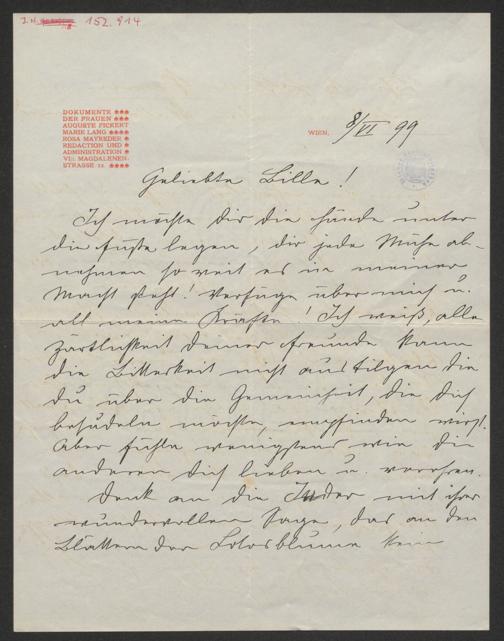 J.N. 152.914
DOKUMENTE ***
DER FRAUEN ***
AUGUSTE FICKERT
MARIE LANG ****
ROSA MAYREDER *
REDACTION UND *
ADMINISTRATION *
VI/1 MAGDALENEN-
STRASSE 12. ****
WIEN, 8/VI 99
Geliebte Lille!
Ich möchte dir die Hände unter
die Füße legen, dir jede Mühe ab-
nehmen so weit es in meiner
Macht steht! Verfüge über mich u.
all meine Kräfte! Ich weiß, alle
Zärtlichkeit deiner Freunde kann
die Bitterkeit nicht austilgen die
du über die Gemeinheit, die dich
besudeln möchte, empfinden wirst.
Aber fühle wenigstens wie die
anderen dich lieben u. verehren.
Denk an die Inder mit ihrer
wundervollen Sage, das an den
Blättern der Lotosblume kein